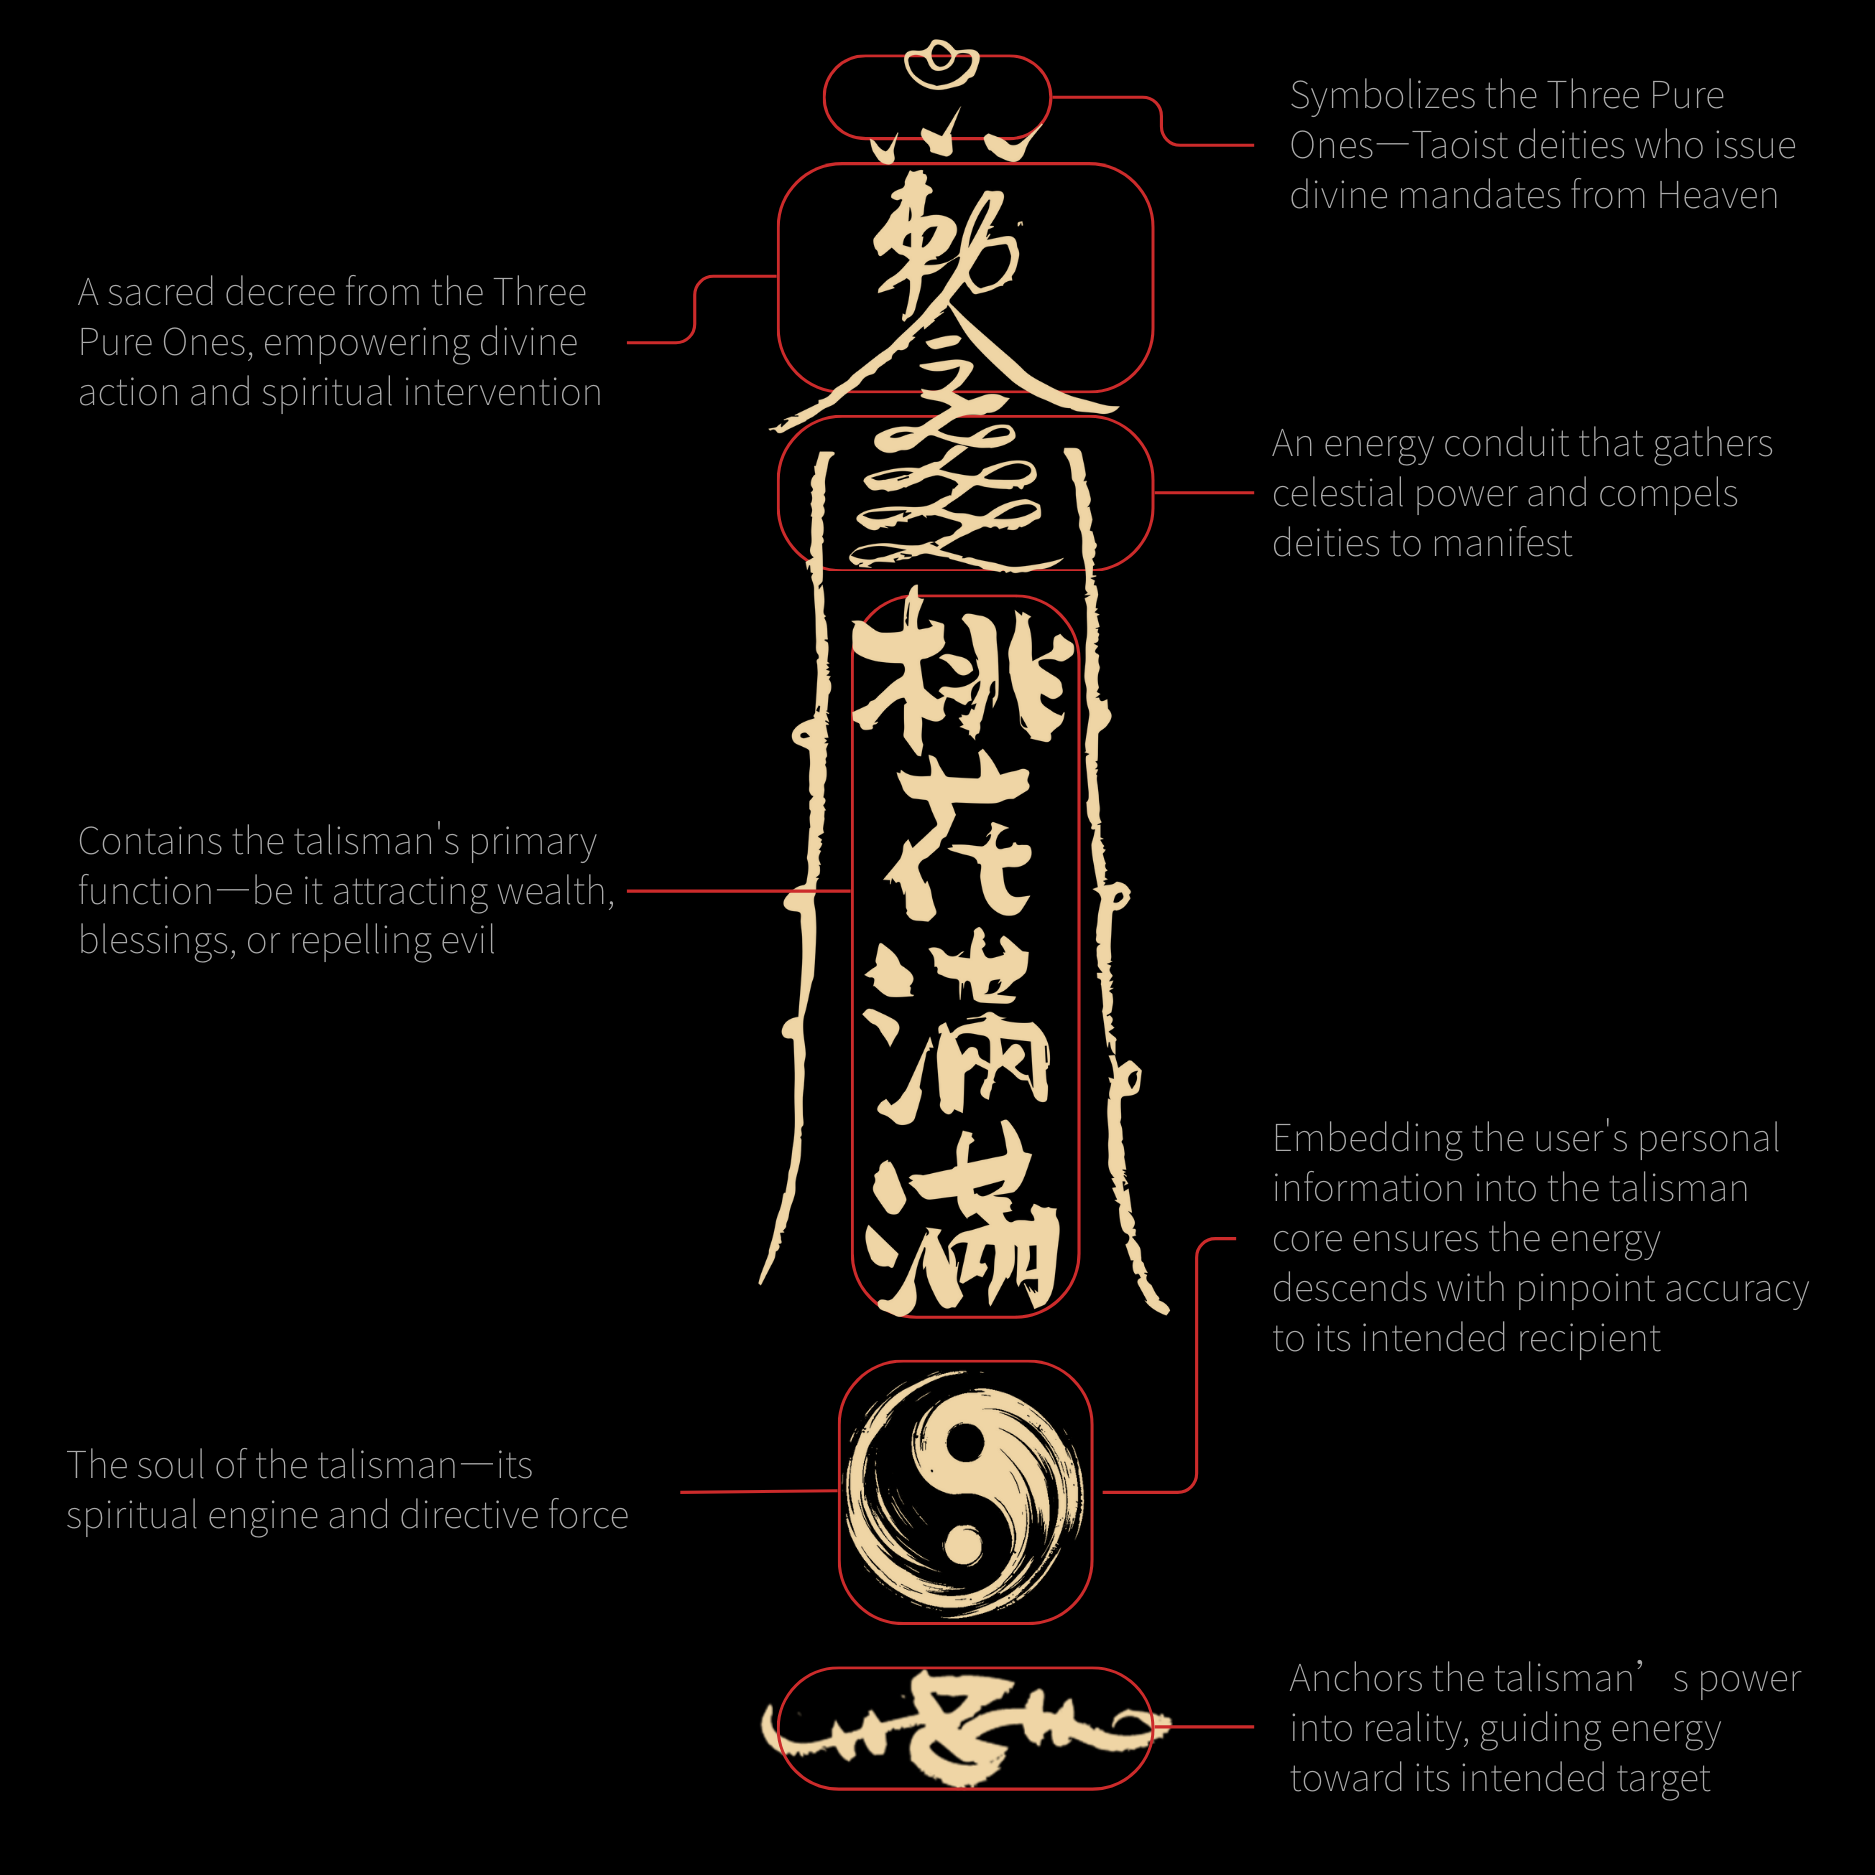 Symbolizes the Three Pure
Ones—Taoist deities who issue
divine mandates from Heaven
A sacred decree from the Three
Pure Ones, empowering divine
action and spiritual intervention
敕
令
An energy conduit that gathers
celestial power and compels
deities to manifest
桃
花
滿
滿
Contains the talisman's primary
function—be it attracting wealth,
blessings, or repelling evil
Embedding the user's personal
information into the talisman
core ensures the energy
descends with pinpoint accuracy
to its intended recipient
The soul of the talisman—its
spiritual engine and directive force
Anchors the talisman’s power
into reality, guiding energy
toward its intended target